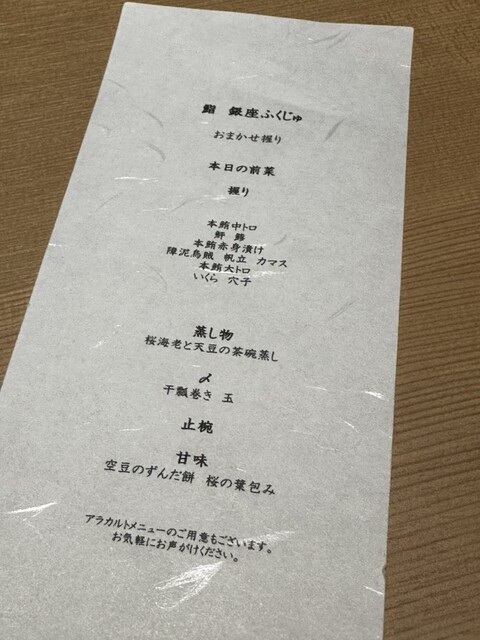 鮨 銀座ふくじゅ
おまかせ握り
本日の前菜
握り
本鮪中トロ
鮃 鯵
本鮪赤身漬け
障泥烏賊 帆立 カマス
本鮪大トロ
いくら 穴子
蒸し物
桜海老と天豆の茶碗蒸し
〆
干瓢巻き 玉
止椀
甘味
空豆のずんだ餅 桜の葉包み
アラカルトメニューのご用意もございます。
お気軽にお声がけください。